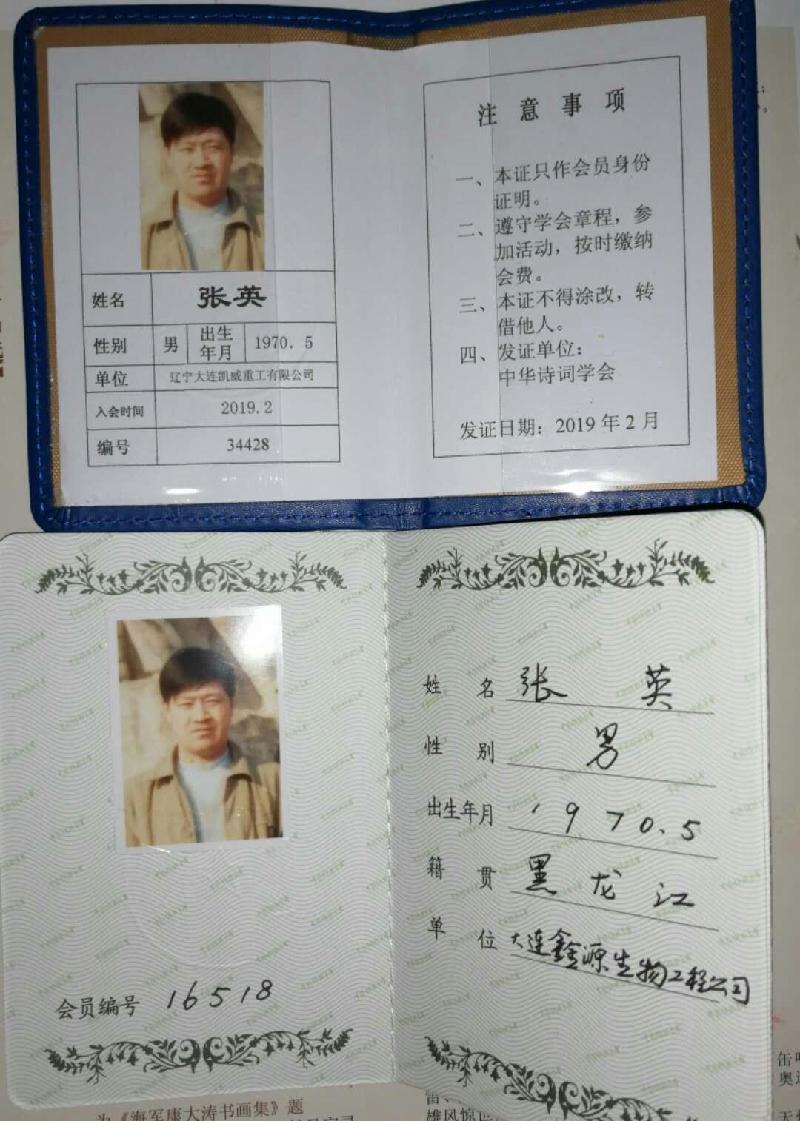 姓名 张英
性别 男 出生年月 1970.5
单位 辽宁大连凯威重工有限公司
入会时间 2019.2
编号 34428
注意事项
一、本证只作会员身份
证明。
二、遵守学会章程，参
加活动，按时缴纳
会费。
三、本证不得涂改，转
借他人。
四、发证单位：
中华诗词学会
发证日期：2019年2月
会员编号 16518
姓名 张英
性别 男
出生年月 1970.5
籍贯 黑龙江
单位 大连鑫源生物工程公司
为《海军康大涛书画集》题